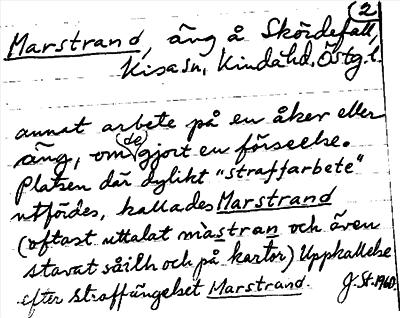 (2
Marstrand, äng å Skördefall,
Kisa sn, Kinda hd. Östg. l.
annat arbete på en åker eller
äng, om de gjort en förseelse.
Platsen där dylikt "straffarbete"
utfördes, kallades Marstrand
(oftast uttalat màstran och även
stavat så ilh och på kartor) Uppkallelse
efter straffängelset Marstrand. J. St. 1960.